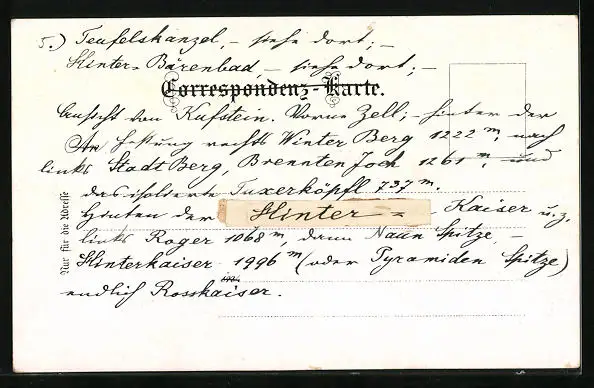 5.) Teufelskanzel, – siehe dort; –
Hinter-Bärenbad, – siehe dort; –
Correspondenz-Karte.
Ansicht von Kufstein. Vorne Zell; – hinter der
An Festung rechts Winter Berg 1222 m, nach
links Stadt Berg, Brennten Joch 1261 m, und
das isolierte Tuxerköpfl 737 m.
Hinten der Hinter = Kaiser u. z.
links Roger 1068 m, dann Naun Spitze –
Hinterkaiser 1996 m (oder Pyramiden Spitze)
endlich Rosskaiser.
Nur für die Adresse